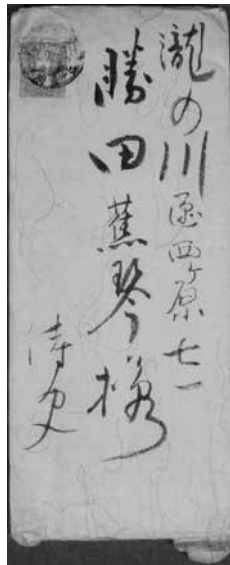 瀧の川區西ヶ原七一
勝田蕉琴様
侍史